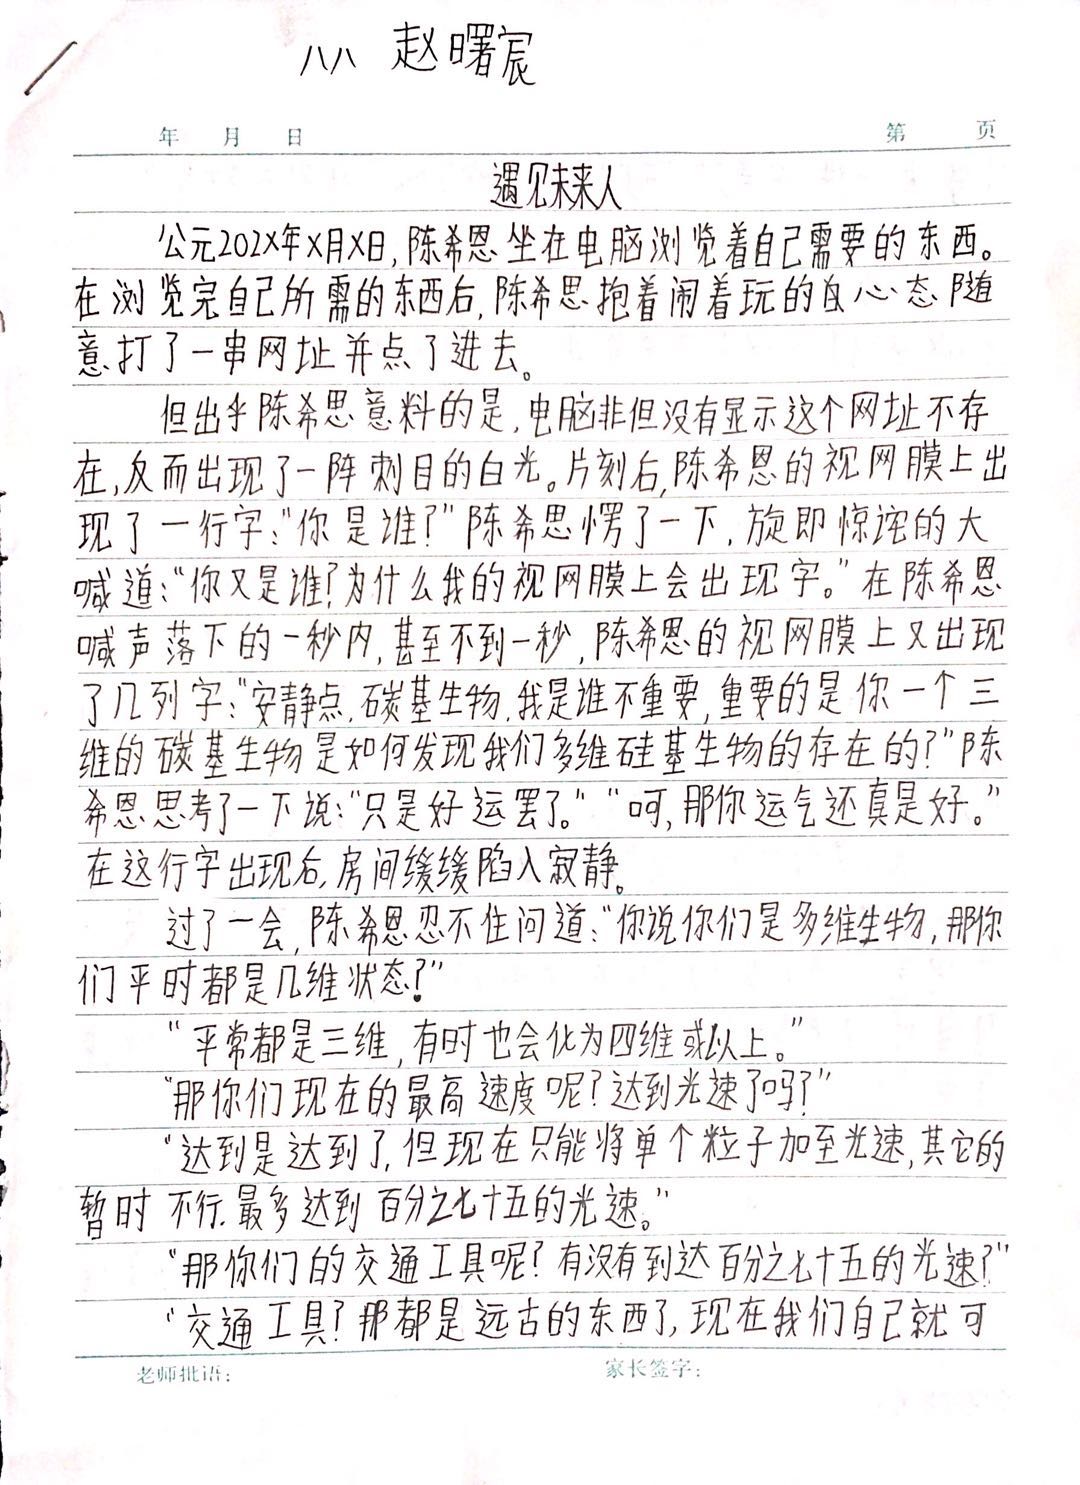 八八 赵曙宸
年 月 日 第 页
遇见未来人
公元202X年X月X日,陈希恩坐在电脑浏览着自己需要的东西。
在浏览完自己所需的东西后,陈希思抱着闹着玩的心态随
意打了一串网址并点了进去。
但出乎陈希思意料的是,电脑非但没有显示这个网址不存
在,反而出现了一阵刺目的白光。片刻后,陈希恩的视网膜上出
现了一行字:“你是谁?”陈希思愣了一下,旋即惊诧的大
喊道:“你又是谁?为什么我的视网膜上会出现字。”在陈希恩
喊声落下的一秒内,甚至不到一秒,陈希恩的视网膜上又出现
了几列字:“安静点,碳基生物,我是谁不重要,重要的是你一个三
维的碳基生物是如何发现我们多维硅基生物的存在的?”陈
希恩思考了一下说:“只是好运罢了。”“呵,那你运气还真是好。”
在这行字出现后,房间缓缓陷入寂静。
过了一会,陈希恩忍不住问道:“你说你们是多维生物,那你
们平时都是几维状态?”
“平常都是三维,有时也会化为四维或以上。”
“那你们现在的最高速度呢?达到光速了吗?”
“达到是达到了,但现在只能将单个粒子加至光速,其它的
暂时不行,最多达到百分之七十五的光速。”
“那你们的交通工具呢?有没有到达百分之七十五的光速?”
“交通工具?那都是远古的东西了,现在我们自己就可
老师批语: 家长签字: